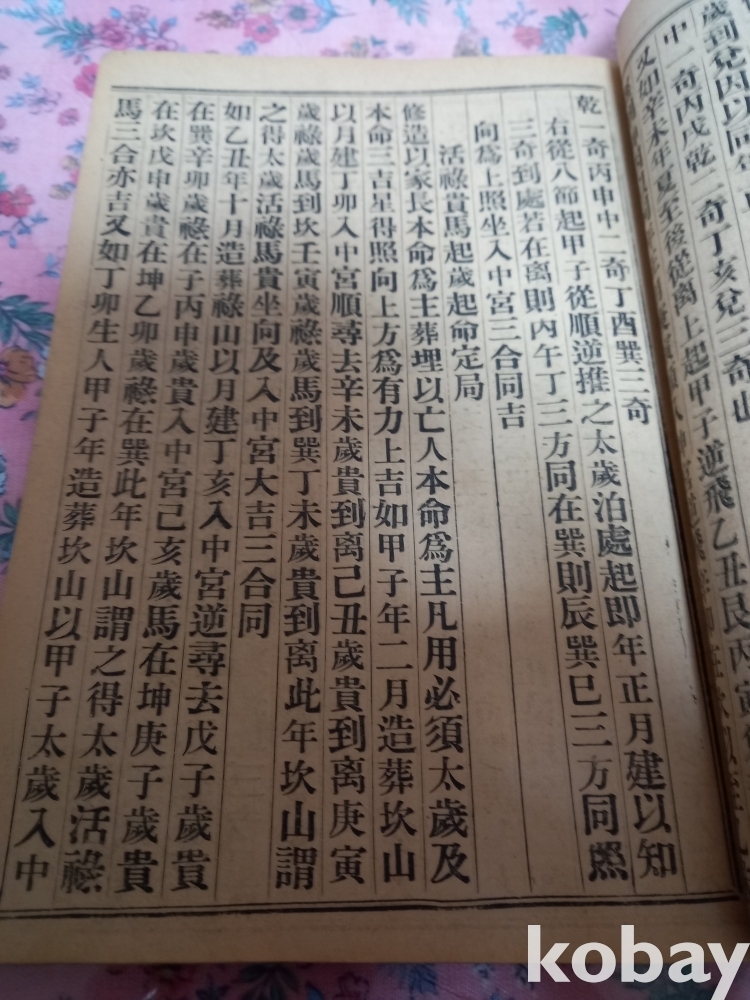 歲到兌因以同
中一奇丙戌乾二奇丁亥兌三奇山
又如辛未年夏至後從离上起甲子逆飛乙丑艮丙寅
乾一奇丙申中二奇丁酉巽三奇
右從八節起甲子從順逆推之太歲泊處起即年正月建以知
三奇到處若在离則丙午丁三方同在巽則辰巽巳三方同照
向為上照坐入中宮三合同吉
活祿貴馬起歲起命定局
修造以家長本命為主葬埋以亡人本命為主凡用必須太歲及
本命三吉星得照向上方為有力上吉如甲子年二月造葬坎山
以月建丁卯入中宮順尋去辛未歲貴到离己丑歲貴到离庚寅
歲祿歲馬到坎壬寅歲祿歲馬到巽丁未歲貴到离此年坎山謂
之得太歲活祿馬貴坐向及入中宮大吉三合同
如乙丑年十月造葬祿山以月建丁亥入中宮逆尋去戊子歲貴
在巽辛卯歲祿在子丙申歲貴入中宮己亥歲馬在坤庚子歲貴
在坎戊申歲貴在坤乙卯歲祿在巽此年坎山謂之得太歲活祿
馬三合亦吉又如丁卯生人甲子年造葬坎山以甲子太歲入中
kobay